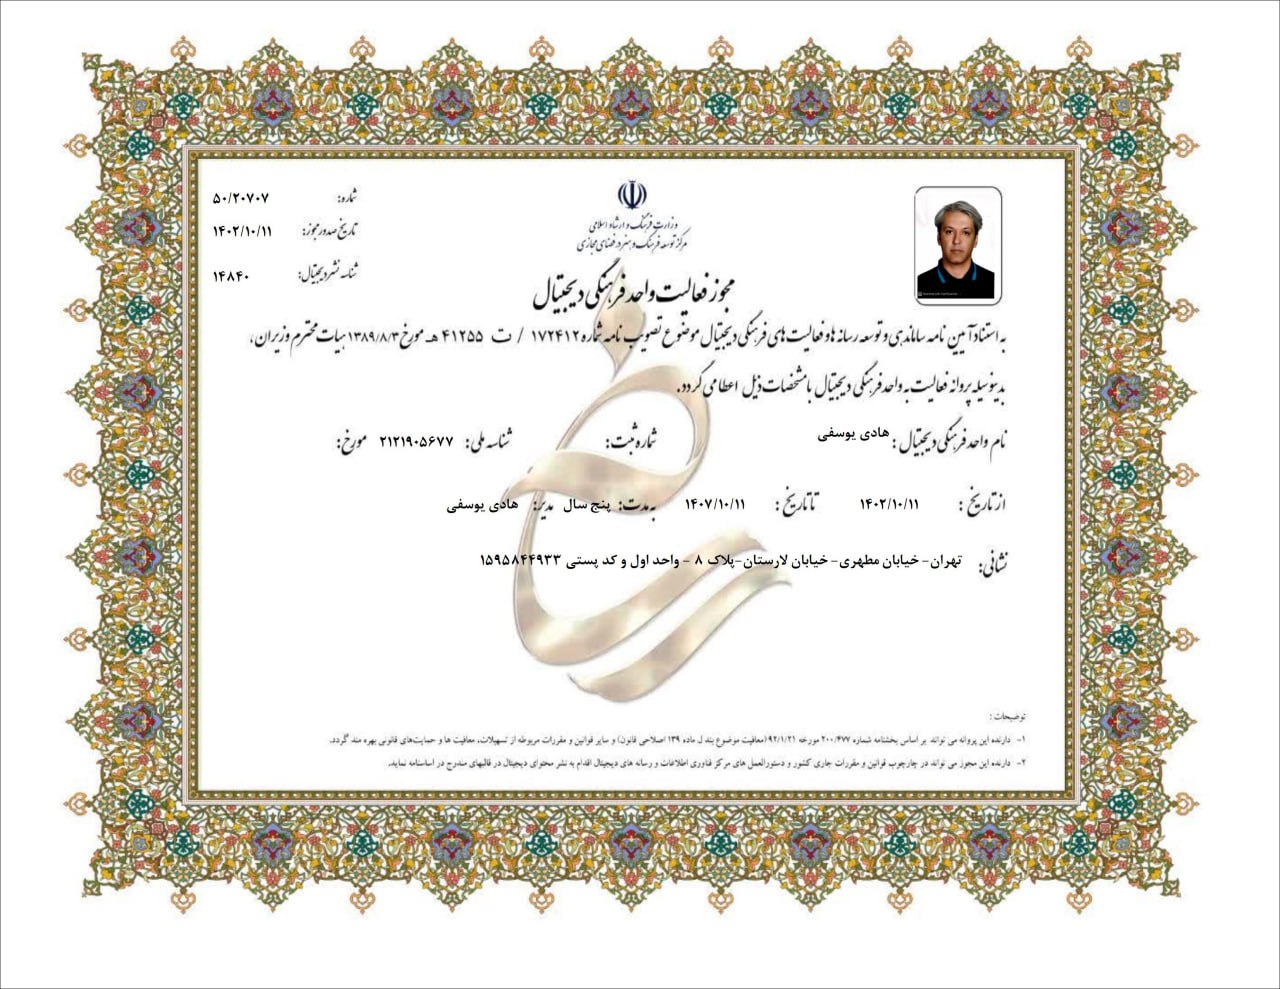 وزارت فرهنگ و ارشاد اسلامی
مرکز توسعه فرهنگ و هنر در فضای مجازی
شماره: ۵۰/۲۰۷۰۷
تاریخ صدور مجوز: ۱۴۰۲/۱۰/۱۱
شناسه نشر دیجیتال: ۱۴۸۴۰
مجوز فعالیت واحد فرهنگی دیجیتال
به استناد آیین نامه ساماندهی و توسعه رسانه ها و فعالیت های فرهنگی دیجیتال موضوع تصویب نامه شماره ۱۷۲۴۱۲ / ت ۴۱۲۵۵ هـ مورخ ۱۳۸۹/۸/۳ هیات محترم وزیران،
بدینوسیله پروانه فعالیت به واحد فرهنگی دیجیتال با مشخصات ذیل اعطا می گردد.
نام واحد فرهنگی دیجیتال : هادی یوسفی شماره ثبت: شناسه ملی: ۲۱۲۱۹۰۵۶۷۷ مورخ:
از تاریخ : ۱۴۰۲/۱۰/۱۱ تا تاریخ : ۱۴۰۷/۱۰/۱۱ به مدت: پنج سال مدیر: هادی یوسفی
نشانی: تهران- خیابان مطهری- خیابان لارستان-پلاک ۸ - واحد اول و کد پستی ۱۵۹۵۸۴۴۹۳۳
توضیحات :
۱- دارنده این پروانه می تواند بر اساس بخشنامه شماره ۲۰۰/۴۷۷ مورخه ۹۲/۱/۲۱(معافیت موضوع بند ل ماده ۱۳۹ اصلاحی قانون) و سایر قوانین و مقررات مربوطه از تسهیلات، معافیت ها و حمایت‌های قانونی بهره مند گردد.
۲- دارنده این مجوز می تواند در چارچوب قوانین و مقررات جاری کشور و دستورالعمل های مرکز فناوری اطلاعات و رسانه های دیجیتال اقدام به نشر محتوای دیجیتال در قالبهای مندرج در اساسنامه نماید.